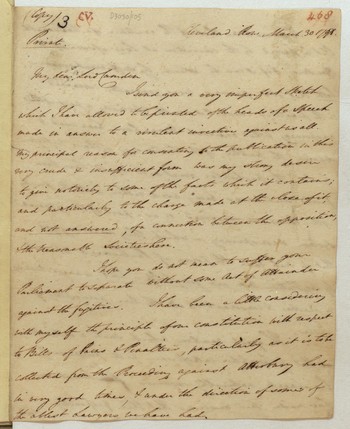 (Copy) 3 CV. 33030/03 468
Cleveland Row, March 30 1798.
Private
My dear Lord Camden
I send you a very imperfect sketch
which I have allowed to be printed of the heads of a speech
made in answer to a virulent invective against us all
my principal reason for consenting to the publication in this
very crude & insufficient form was my strong desire
to give notoriety to some of the facts which it contains;
and particularly to the charge made at the close of it,
and not answered, of a connection between the opposition,
& the treasonable Societies here.
I hope you do not mean to suffer your
Parliament to separate without some Act of Attainder
against the fugitives. I have been a little considering
with myself the principle of our constitution with respect
to Bills of Pains & Penalties, particularly as it is to be
collected from the Proceeding against Atterbury had
in very good times, & under the direction of some of
the ablest Lawyers we have had.